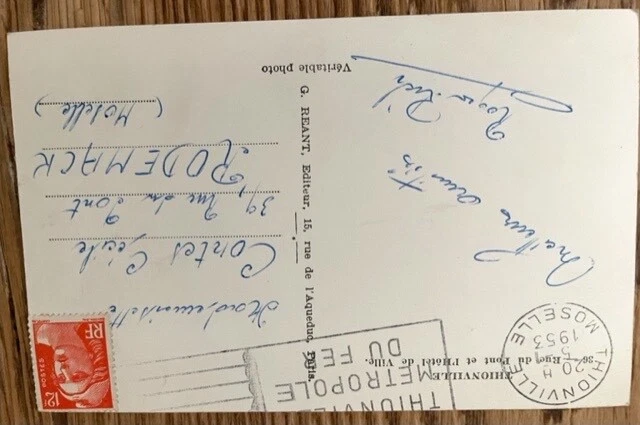 THIONVILLE
36 - Rue du Pont et l'Hôtel de Ville.
Meilleur souvenir
Roger
G. REANT, Editeur, 15, rue de l'Aqueduc, Paris.
Véritable photo
THIONVILLE
MOSELLE
20 H
5
1953
THIONVILLE
METROPOLE
DU FER
RF
12F
POSTES
Mademoiselle
Contes Cécile
39, Rue du Pont
RODEMACK
(Moselle)